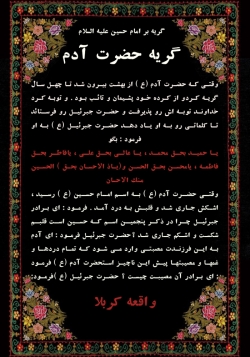 گریه بر امام حسین علیه السلام
گریه حضرت آدم
وقتی که حضرت آدم (ع) از بهشت بیرون شد تا چهل سال
گریه کرد و از کرده خود پشیمان و تائب بود . و توبه کرد
خداوند توبه اش رو پذیرفت و حضرت جبرئیل رو فرستاد
تا کلماتی رو به او یاد دهد حضرت جبرئیل (ع) به او
فرمود : بگو
یا حمید بحق محمد ، یا عالی بحق علی ، یافاطر بحق
فاطمه ، یامحسن بحق الحسن و(یاذ الاحسان بحق ) الحسین
منك الاحسان
وقتی حضرت آدم (ع) به اسم امام حسین (ع) رسید ،
اشکش جاری شد و قلبش به درد آمد . فرمود : ای برادر
جبرئیل چرا در ذکر پنجمین اسم که حسین است قلبم
شکست و اشکم جاری شد ؟حضرت جبرئیل فرمود : ای آدم
به این فرزندت مصیبتی وارد می شود که تمام دردها و
غمها و مصیبتها پیش این ناچیز است.حضرت آدم (ع) فرمود
: ای برادر آن مصیبت چیست ؟ حضرت جبرئیل (ع) فرمود:
واقعه کربلا